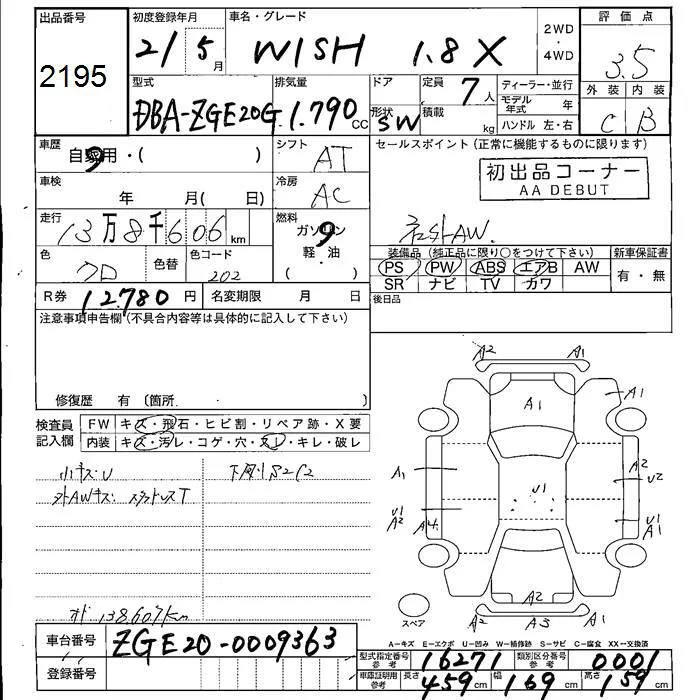 出品番号
2195
初度登録年月
21 5月
車名・グレード
WISH 1.8X
2WD
・
4WD
評価点
3.5
外装 内装
C B
型式
DBA-ZGE20G
排気量
1.790cc
ドア
形状
SW
定員 7人
積載 kg
ディーラー・並行
モデル年式 年
ハンドル 左・右
車歴
自家用・( )
シフト
AT
セールスポイント(正常に機能するものに限ります)
初出品コーナー
AA DEBUT
車検
年 月( 日)
冷房
AC
走行
13万8千606km
燃料
ガソリン
軽・油
( )
社外AW.
色
クロ
色替
色コード
202
装備品(純正品に限り○をつけて下さい)
PS PW ABS エアB AW
SR ナビ TV カワ
新車保証書
有・無
R券 12.780円
名変期限 月 日
後日品
注意事項申告欄(不具合内容等は具体的に記入して下さい)
修復歴 有 〔箇所. 〕
検査員
記入欄
FW キズ・飛石・ヒビ割・リペア跡・X要
内装 キズ・汚レ・コゲ・穴・スレ・キレ・破レ
小キズ・U
外AWキズ・
下廻りS2C2
138.607km
A2 A1
A1
A1
A1
A2
U2
U1
U1
A2
A4
U1
A1
A2
A2 A3 A2
スペア
A−キズ E−エクボ U−凹み W−補修跡 S−サビ C−腐食 XX−交換済
車台番号 ZGE20-0009363
登録番号
型式指定番号
参考
16271
類別区分番号
参考
0001
車庫証明用
参考
長さ 459cm 幅 169cm 高さ 159cm